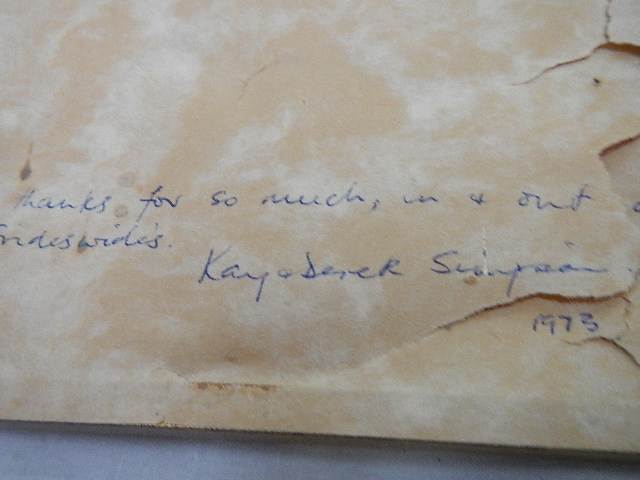 thanks for so much, in & out o
Frideswide's.
Kay & Derek Simpson.
1973